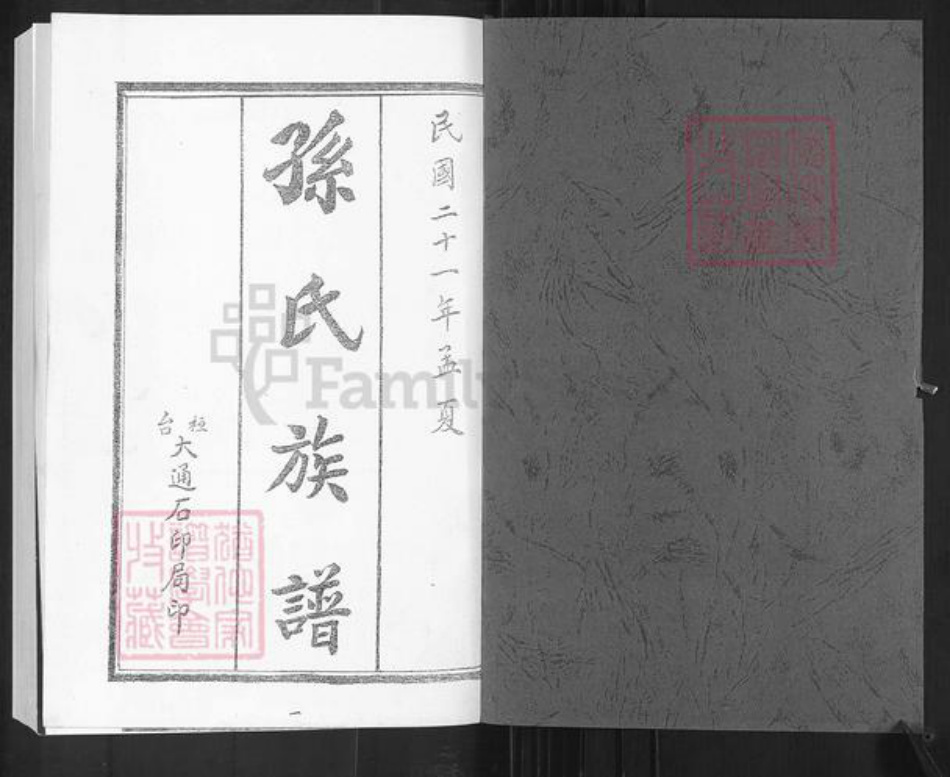 民國二十一年孟夏
孫氏族譜
桓台大通石印局印
一